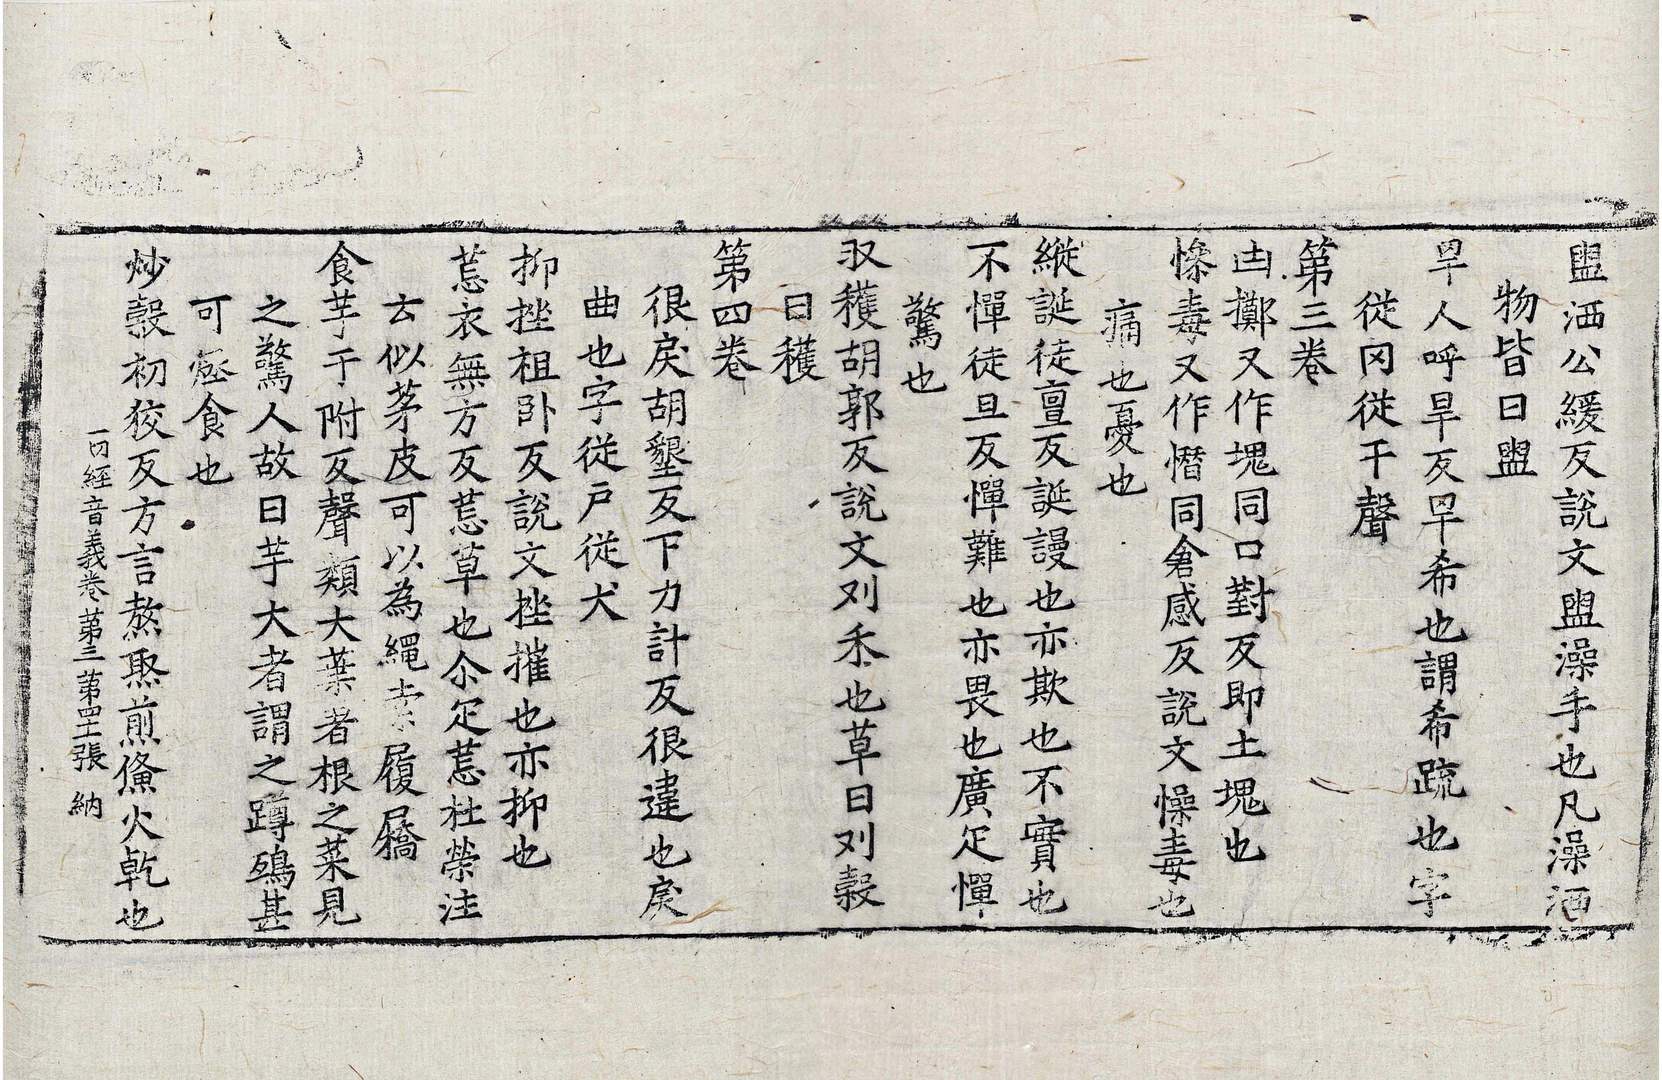 盥洒公緩反說文盥澡手也凡澡洒
物皆曰盥
罕人呼旱反罕希也謂希疏也字
從冈從干聲
第三卷
凷擲又作塊同口對反即土塊也
慘毒又作憯同倉感反說文慘毒也
痛也憂也
縱誕徒亶反誕謾也亦欺也不實也
不憚徒旦反憚難也亦畏也廣疋憚
驚也
収穫胡郭反說文刈禾也草曰刈穀
曰穫
第四卷
很戾胡墾反下力計反很違也戾
曲也字從戶從犬
抑挫祖卧反說文挫摧也亦抑也
莣衣無方反莣草也尒疋莣杜榮注
云似茅皮可以為繩索履屩
食芋于附反聲類大葉者根之菜見
之驚人故曰芋大者謂之蹲鴟甚
可蒸食也
炒穀初狡反方言熬聚煎㷶火乾也
一切經音義卷第三第四十張 納